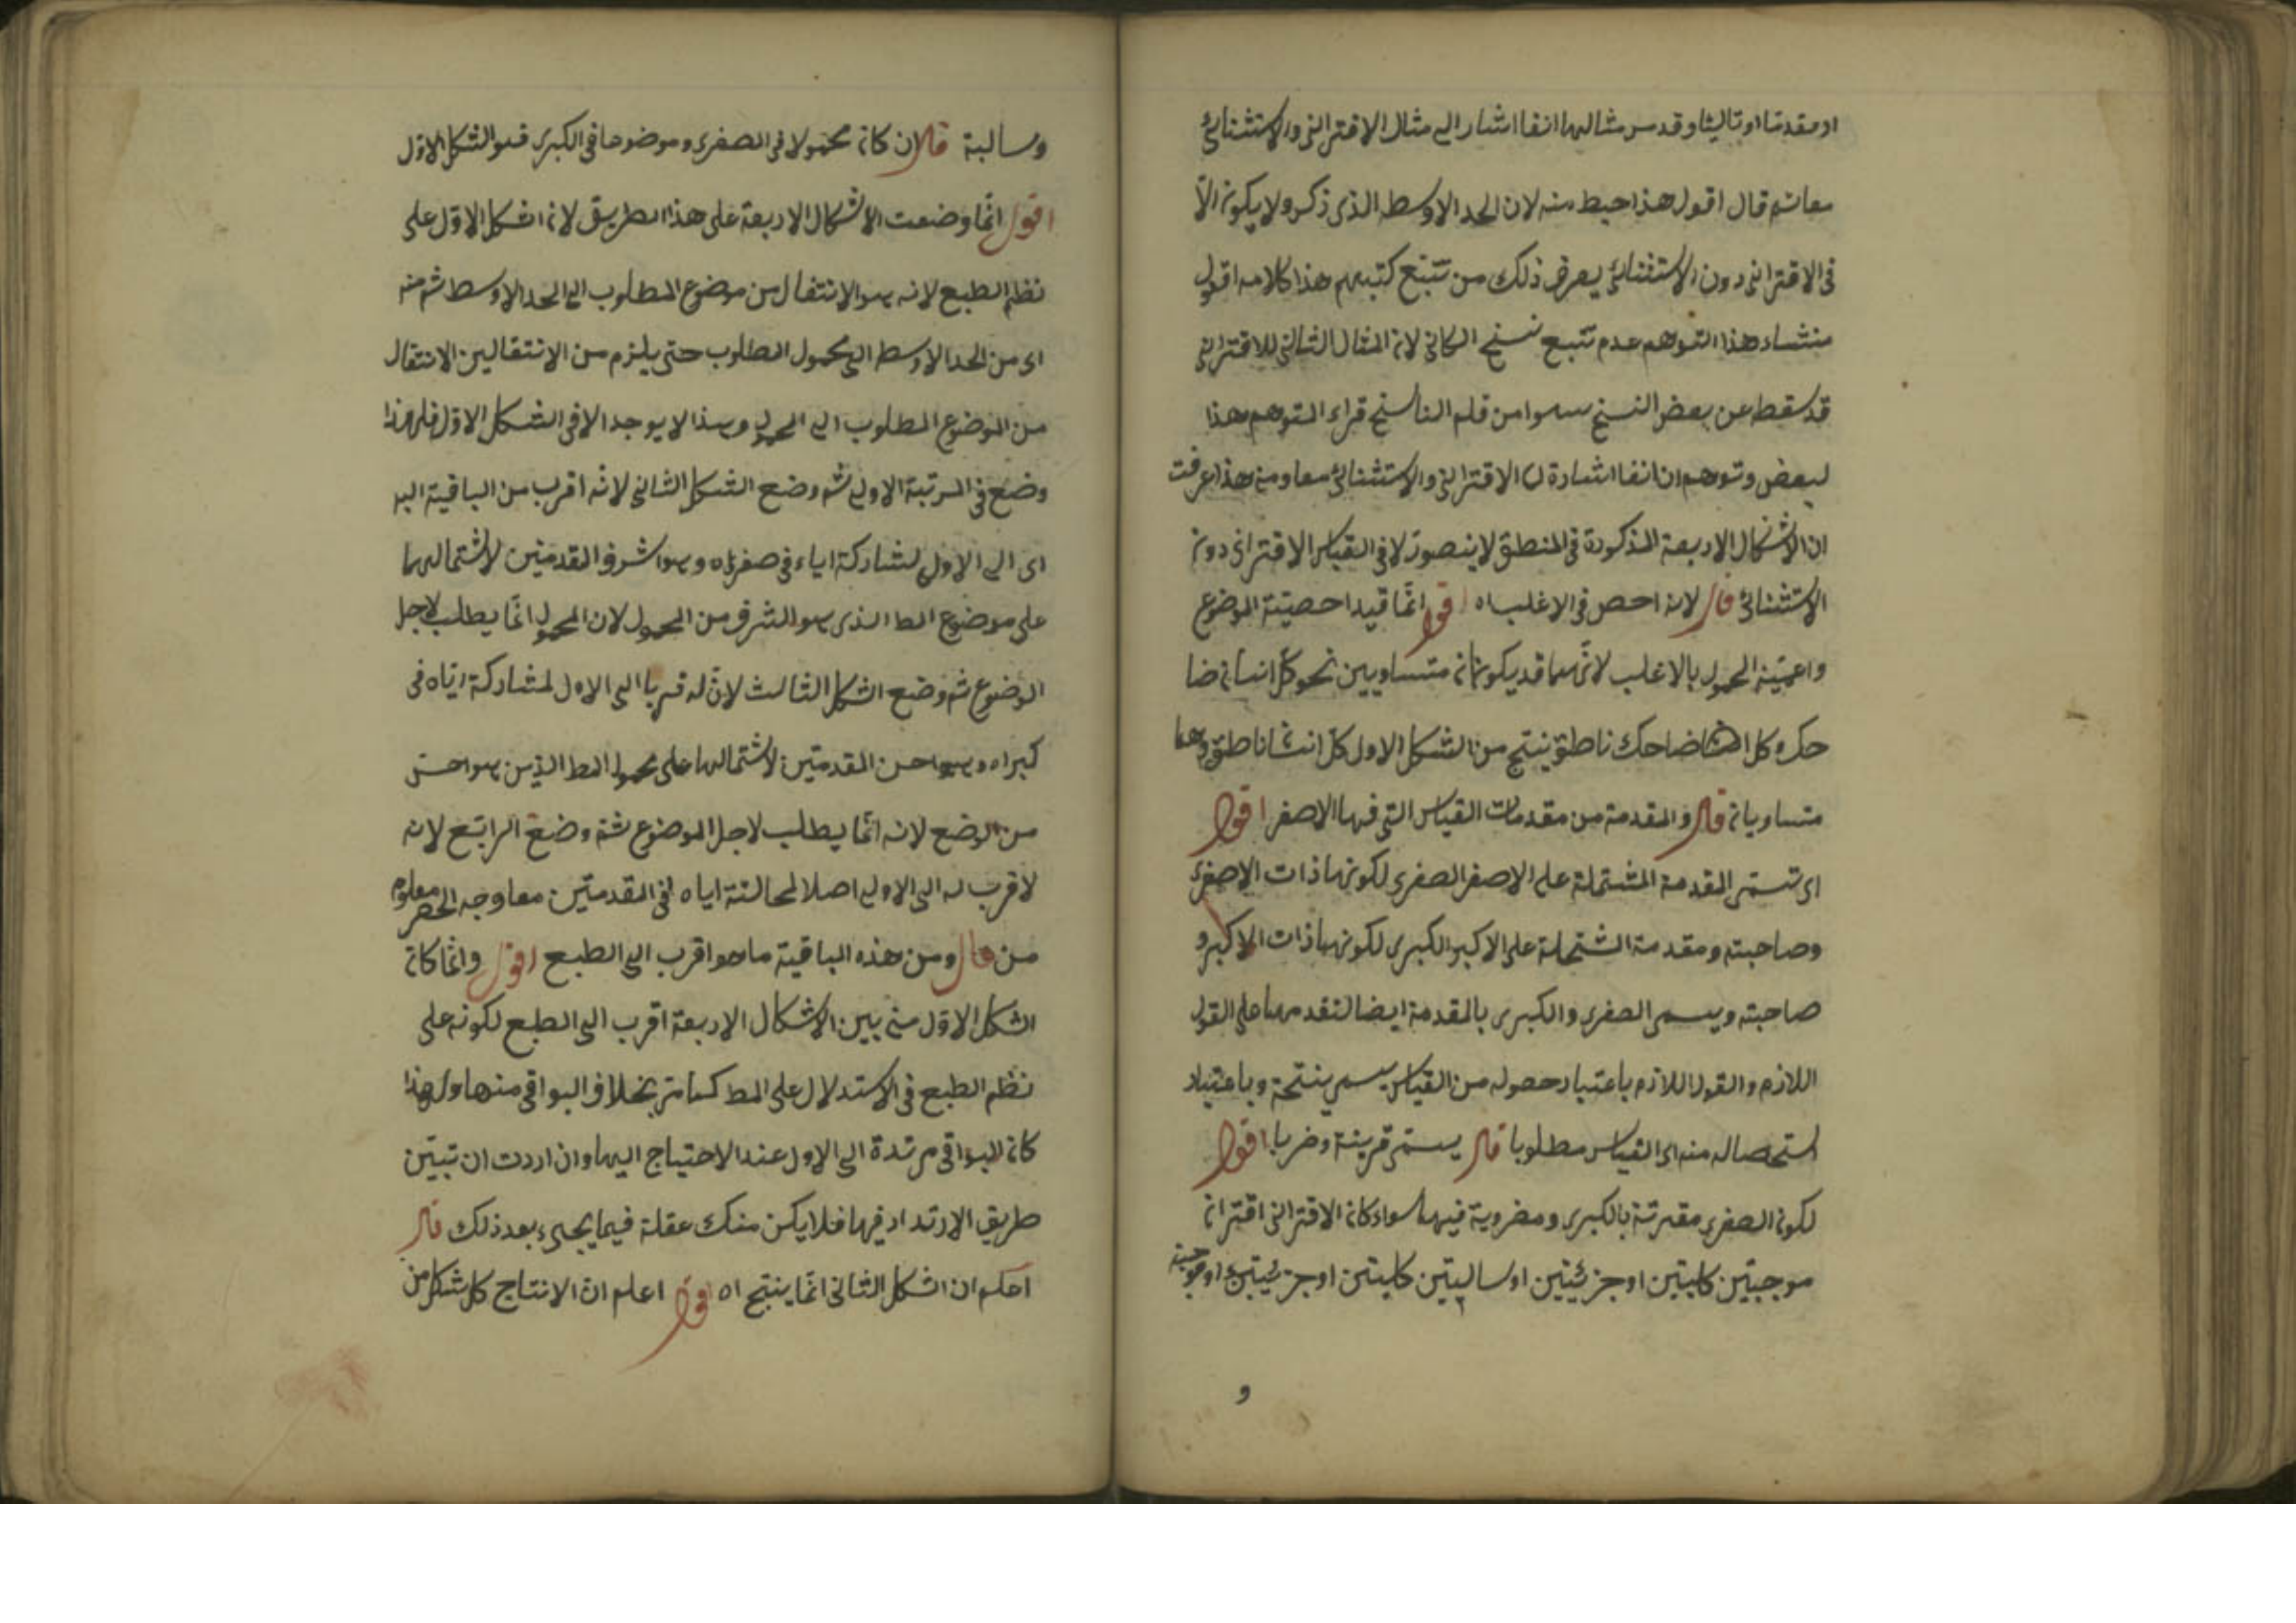 او مقدما او تاليا وقد مر مثالهما انفا اشار الى مثال الاقتراني والاستثنائي
معا ثم قال اقول هذا خبط منه لان الحد الاوسط الذى ذكره لا يكون الا
فى الاقتراني دون الاستثنائي يعرف ذلك من تتبع كتبهم هذا كلامه اقول
منشاء هذا التوهم عدم تتبع نسخ الكاتى لان المثال الثانى للاقتراني
قد سقط عن بعض النسخ سهوا من قلم الناسخ قراء المتوهم هذا
البعض وتوهم ان انفا اشارة الى الاقتراني والاستثنائي معا ومن هذا عرفت
ان الاشكال الاربعة المذكورة فى المنطق لا يتصور الا فى القياس الاقترانى دون
الاستثنائي قال لانه اخص فى الاغلب اه اقول انما قيد اخصية الموضوع
واعمية المحمول بالاغلب لانهما قد يكونان متساويين نحو كل انسان ضا
حك وكل ضاحك ناطق ينتج من الشكل الاول كل انسان ناطق وهما
متساويان قال والمقدمة من مقدمات القياس التى فيها الاصغر اقول
اى تسمى المقدمة المشتملة على الاصغر الصغرى لكونها ذات الاصغر
وصاحبته ومقدمة المشتملة على الاكبر الكبرى لكونها ذات الاكبر و
صاحبته ويسمى الصغرى والكبرى بالمقدمة ايضا لتقدمهما على القول
اللازم والقول اللازم باعتبار حصوله من القياس يسمى ينتجة وباعتبار
استحصاله منه اى القياس مطلوبا قال يسمى قرينة وضربا اقول
لكون الصغرى مقترنة بالكبرى ومضروبة فيها سواء كان الاقترانى اقتران
موجبتين كليتين او جزئيتين او سالبتين كليتين او جزئيتين او موجبة
و
وسالبة قال ان كان محمولا فى الصغرى وموضوعا فى الكبرى فهو الشكل الاول
اقول انما وضعت الاشكال الاربعة على هذا الطريق لان الشكل الاول على
نظم الطبع لانه هو الانتقال من موضوع المطلوب الى الحد الاوسط ثم منه
اى من الحد الاوسط الى محمول المطلوب حتى يلزم من الانتقالين الانتقال
من الموضوع المطلوب الى المحمول وهذا لا يوجد الا فى الشكل الاول فلهذا
وضع فى المرتبة الاولى ثم وضع الشكل الثانى لانه اقرب من الباقية اليه
اى الى الاول لمشاركة اياه فى صغراه وهو اشرف المقدمتين لاشتمالها
على موضوع المط الذى هو اشرف من المحمول لان المحمول انما يطلب لاجل
الموضوع ثم وضع الشكل الثالث لان له قربا الى الاول لمشاركة اياه فى
كبراه وهو احسن المقدمتين لاشتمالها على محمول المط الذين هو احسن
من الوضع لانه انما يطلب لاجل الموضوع ثم وضع الرابع لانه
لا قرب له الى الاول اصلا لمخالفة اياه فى المقدمتين معا ووجه الحصر معلوم
من قال ومن هذه الباقية ما هو اقرب الى الطبع اقول وانما كان
الشكل الاول من بين الاشكال الاربعة اقرب الى الطبع لكونه على
نظم الطبع فى الاستدلال على المط كما مر بخلاف البواقى منها ولهذا
كان البواقى مرتدة الى الاول عند الاحتياج اليها وان اردت ان تبين
طريق الارتداد فيها فلا يكن منك عقلة فيما يجىء بعد ذلك قال
اعلم ان الشكل الثانى انما ينتج اه اقول اعلم ان الانتاج كل شكل من